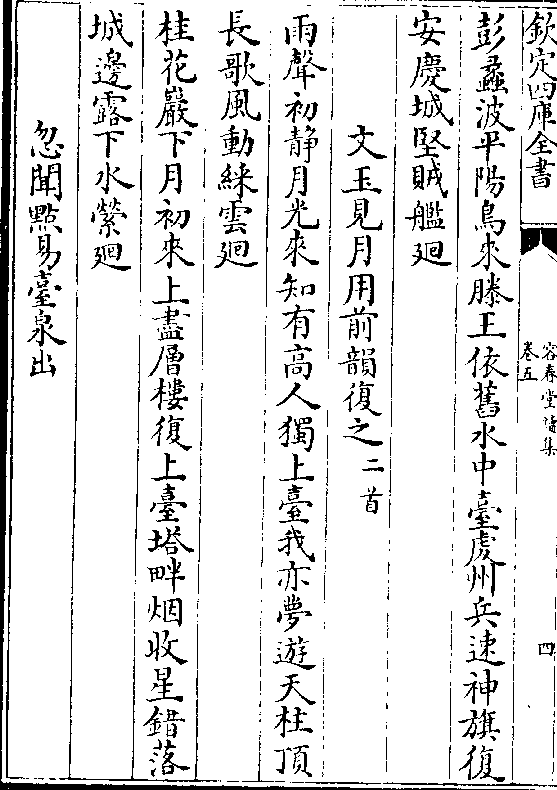 欽定四庫全書
容春堂續集
卷五
四
彭蠡波平陽鳥來滕王依舊水中臺䖏州兵速神旗復
安慶城堅賊艦廻
文玉見月用前韻復之二首
雨聲初静月光來知有高人獨上臺我亦夢遊天柱頂
長歌風動綵雲廻
桂花巖下月初來上盡層樓復上臺塔畔烟收星錯落
城邊露下水縈廻
忽聞點易臺泉出